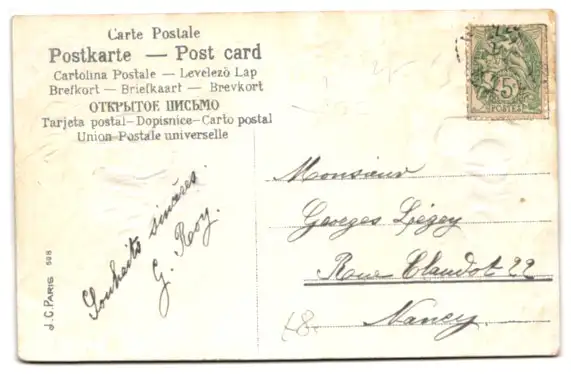 Carte Postale
Postkarte — Post card
Cartolina Postale — Levelezö Lap
Brefkort — Briefkaart — Brevkort
ОТКРЫТОЕ ПИСЬМО
Tarjeta postal–Dopisnice–Carto postal
Union Postale universelle
Souhaits sincères.
G. Roy.
J.C. PARIS 508
5
POSTES
Monsieur
Georges Liégey
Rue Claudot 22
Nancy.